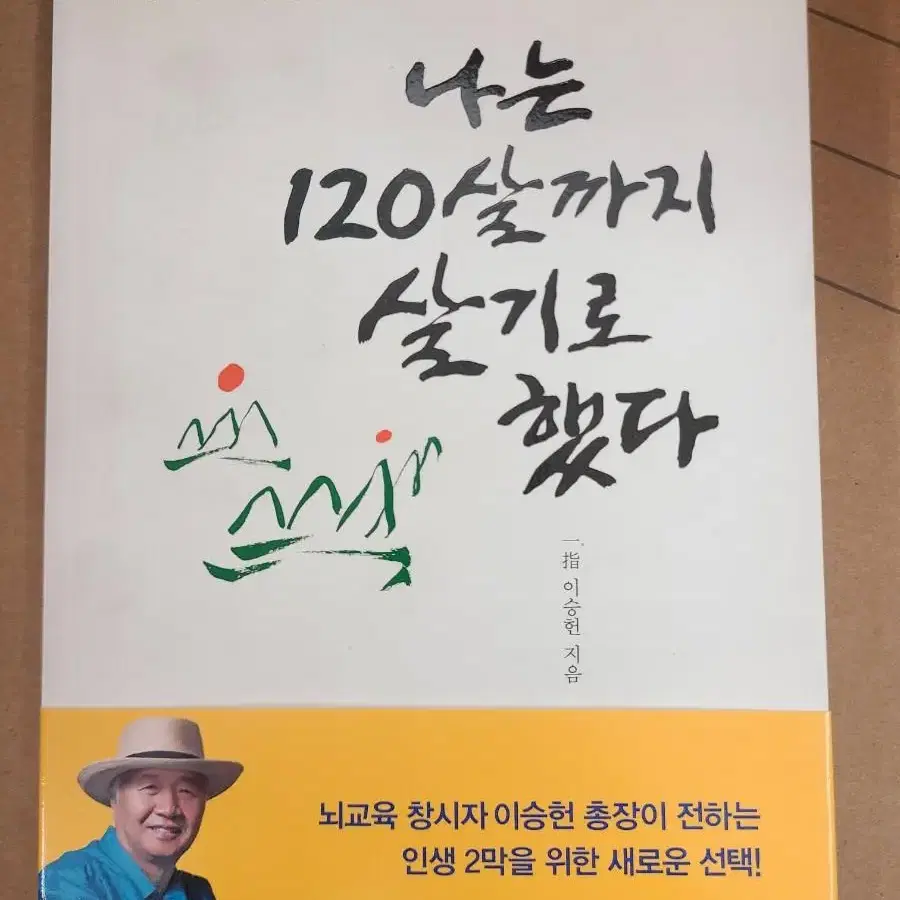 나는
120살까지
살기로
했다
一指 이승헌 지음
뇌교육 창시자 이승헌 총장이 전하는
인생 2막을 위한 새로운 선택!